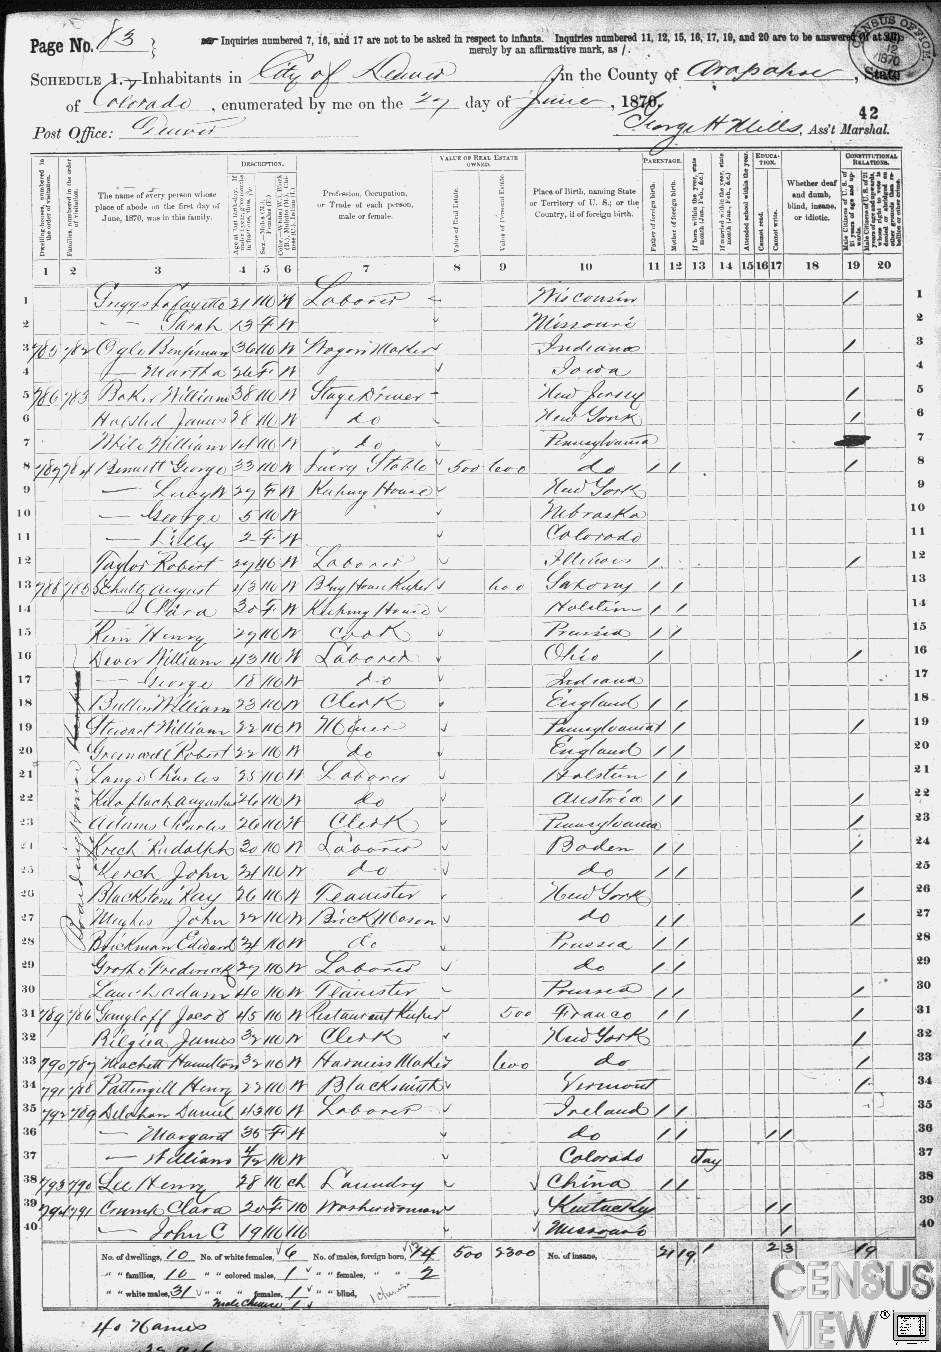 Page No. 83
Inquiries numbered 7, 16, and 17 are not to be asked in respect to infants. Inquiries numbered 11, 12, 15, 16, 17, 19, and 20 are to be answered (if at all) merely by an affirmative mark, as /.
CENSUS OFFICE 1870
SCHEDULE 1.—Inhabitants in City of Denver, in the County of Arapahoe, State
of Colorado, enumerated by me on the 27 day of June, 1870.
42
Post Office: Denver George H Mills, Ass't Marshal.
Dwelling-houses, numbered in the order of visitation.
Families, numbered in the order of visitation.
The name of every person whose place of abode on the first day of June, 1870, was in this family.
DESCRIPTION.
Age at last birth-day. If under 1 year, give months in fractions, thus, 3/12.
Sex.—Males (M.), Females (F.)
Color.—White (W.), Black (B.), Mulatto (M.), Chinese (C.), Indian (I.)
Profession, Occupation, or Trade of each person, male or female.
VALUE OF REAL ESTATE OWNED.
Value of Real Estate.
Value of Personal Estate.
Place of Birth, naming State or Territory of U. S.; or the Country, if of foreign birth.
PARENTAGE.
Father of foreign birth.
Mother of foreign birth.
If born within the year, state month (Jan., Feb., &c.)
If married within the year, state month (Jan., Feb., &c.)
Attended school within the year.
EDUCATION.
Cannot read.
Cannot write.
Whether deaf and dumb, blind, insane, or idiotic.
CONSTITUTIONAL RELATIONS.
Male Citizens of U. S. of 21 years of age and upwards.
Male Citizens of U. S. of 21 years of age and upwards, whose right to vote is denied or abridged on other grounds than rebellion or other crime.
1 2 3 4 5 6 7 8 9 10 11 12 13 14 15 16 17 18 19 20
1 Griggs Lafayette 21 M W Laborer Wisconsin / 1
2 — Sarah 13 F W Missouri 2
3 785 782 Ogle Benjaman 36 M W Wagon Maker Indiana / 3
4 — Martha 26 F W Iowa 4
5 786 783 Baker William 38 M W Stage Driver New Jersey / 5
6 Halsted James 28 M W do New York / 6
7 White William 14 M W do Pennsylvania 7
8 787 784 Bennett George 33 M W Livery Stable 500 600 do / / / 8
9 — Lucy W 29 F W Keeping House New York 9
10 — George 5 M W Nebraska 10
11 — Lilly 2 F W Colorado 11
12 Taylor Robert 29 M W Laborer Illinois / / 12
13 788 785 Schultz August 43 M W Bdng House Keeper 600 Saxony / / 13
14 — Clara 30 F W Keeping House Holstein / / 14
15 Henry 29 M W Cook Prussia / / 15
16 Dever William 43 M W Laborer Ohio / / 16
17 — George 18 M W do Indiana 17
18 William 23 M W Clerk England / / 18
19 Stewart William 22 M W Miner Pennsylvania / / / 19
20 Robert 22 M W do England / / 20
21 Lange Charles 25 M W Laborer Holstein / / 21
22 Augustus 26 M W do Austria / / / 22
23 Adams Charles 26 M W Clerk Pennsylvania / 23
24 Krech Rudolph 30 M W Laborer Baden / / / 24
25 Kerch John 24 M W do do / / 25
26 Blackstone Ray 26 M W Teamster New York / 26
27 Mughes John 22 M W Brick Mason do / / / 27
28 Brickman Edward 24 M W do Prussia / / 28
29 Frederick 27 M W Laborer do / / 29
30 Adam 40 M W Teamster Prussia / / / 30
31 789 786 Gangloff Jacob 45 M W Restaurant Keeper 500 France / / / 31
32 James 32 M W Clerk New York / 32
33 790 787 Machett Hamilton 32 M W Harness Maker 600 do / 33
34 791 788 Pattingill Henry 22 M W Blacksmith Vermont / 34
35 792 789 Delahan Daniel 43 M W Laborer Ireland / / 35
36 — Margaret 35 F W do / / / / 36
37 — William 4/12 M W Colorado 37
38 793 790 Lee Henry 28 M Ch Laundry China / / 38
39 794 791 Crump Clara 20 F M Washerwoman Kentucky / / 39
40 — John C 19 M M Missouri / 40
Boarding House
No. of dwellings, 10 No. of white females, 6 No. of males, foreign born, 14 500 2300 No. of insane, 21 19 1 2 3 19
" " families, 10 " " colored males, 1 " " females, " " 2
" " white males, 31 " " " females, 1 " " blind, 1 Chinese
Male Chinese 1
40 Names
CENSUS VIEW